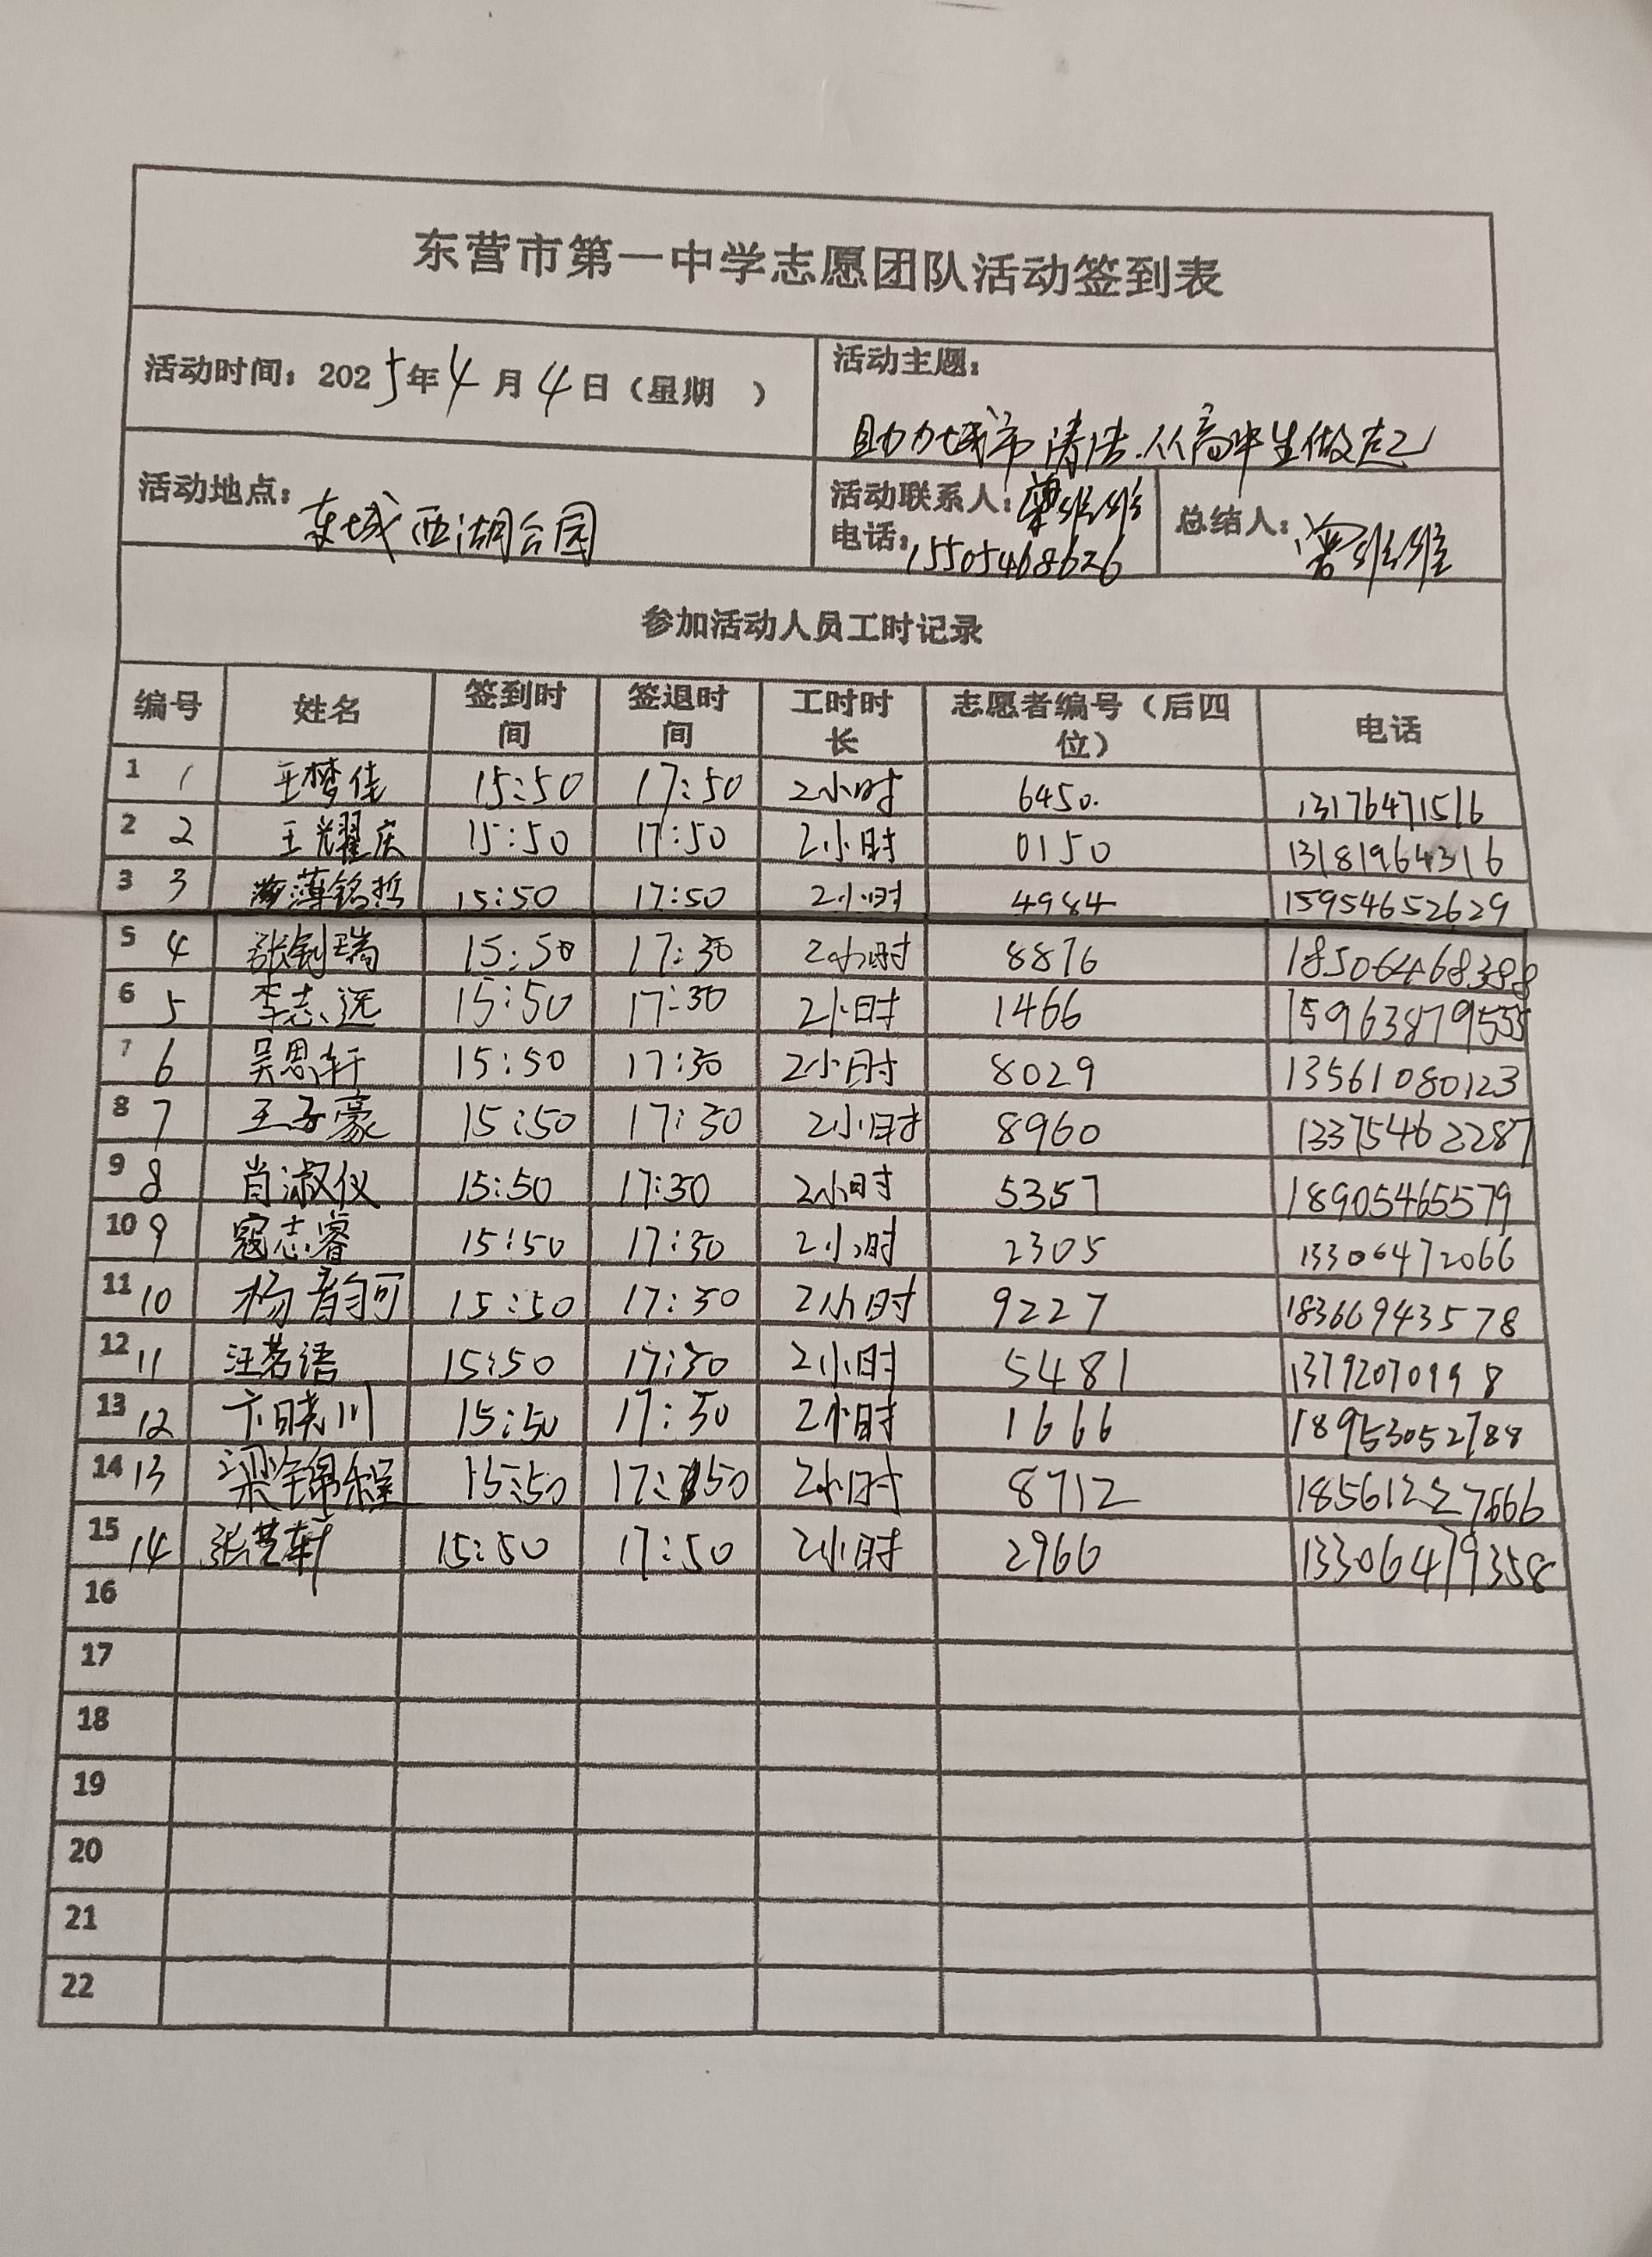 东营市第一中学志愿团队活动签到表
活动时间：2025年4月4日（星期 ）
活动主题：
助力城市清洁.从高中生做起
活动地点：东城西湖公园
活动联系人：曾维维
电话：15505468626
总结人：曾维维
参加活动人员工时记录
编号 姓名 签到时间 签退时间 工时时长 志愿者编号（后四位） 电话
1 1 王梦佳 15:50 17:50 2小时 6450. 13176471516
2 2 王耀庆 15:50 17:50 2小时 0150 13181964316
3 3 薄铭哲 15:50 17:50 2小时 4984 15954652629
5 4 张钊瑞 15:50 17:30 2小时 8876 18506468388
6 5 李志远 15:50 17:30 2小时 1466 15963879555
7 6 吴思轩 15:50 17:30 2小时 8029 13561080123
8 7 王子豪 15:50 17:30 2小时 8960 13375462287
9 8 肖淑仪 15:50 17:30 2小时 5357 18905465579
10 9 寇志睿 15:50 17:30 2小时 2305 13306472066
11 10 杨韵可 15:50 17:30 2小时 9227 18366943578
12 11 汪茗语 15:50 17:30 2小时 5481 13792070998
13 12 卞晓川 15:50 17:30 2小时 1666 18953052788
14 13 梁锦程 15:50 17:50 2小时 8712 18561227666
15 14 张芸轩 15:50 17:50 2小时 2966 13306479358
16
17
18
19
20
21
22